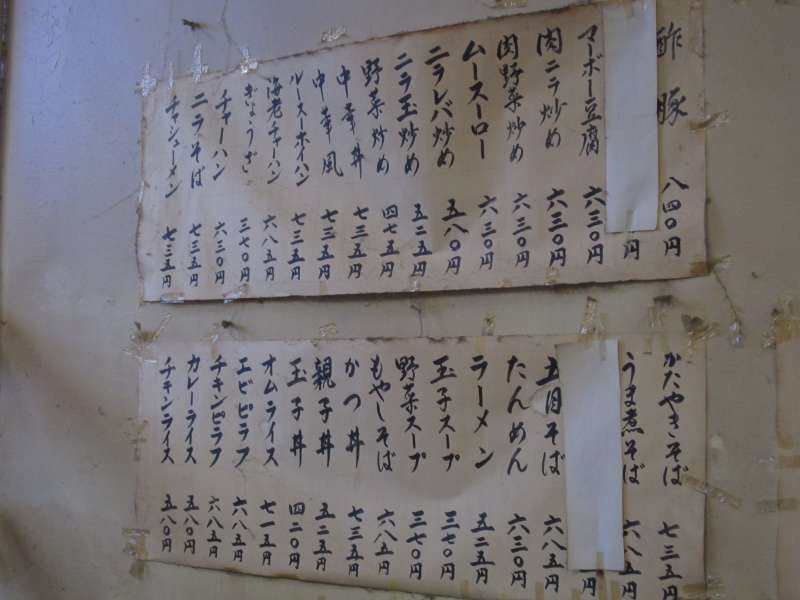 酢豚 八四〇円
円
マーボー豆腐 六三〇円
肉ニラ炒め 六三〇円
肉野菜炒め 六三〇円
ムースーロー 六三〇円
ニラレバ炒め 五八〇円
ニラ玉炒め 五二五円
野菜炒め 四七五円
中華丼 七三五円
中華風 七三五円
ルースーホイハン 七三五円
海老チャーハン 六八五円
ぎょうざ 三七〇円
チャーハン 六三〇円
ニラそば 七三五円
チャシューメン 七三五円
かたやきそば 七三五円
うま煮そば 六八五円
円
五目そば 六八五円
たんめん 六三〇円
ラーメン 五二五円
玉子スープ 三七〇円
野菜スープ 三七〇円
もやしそば 六八五円
かつ丼 七三五円
親子丼 五二五円
玉子丼 四二〇円
オムライス 七一五円
エビピラフ 六八五円
チキンピラフ 六八五円
カレーライス 五八〇円
チキンライス 五八〇円